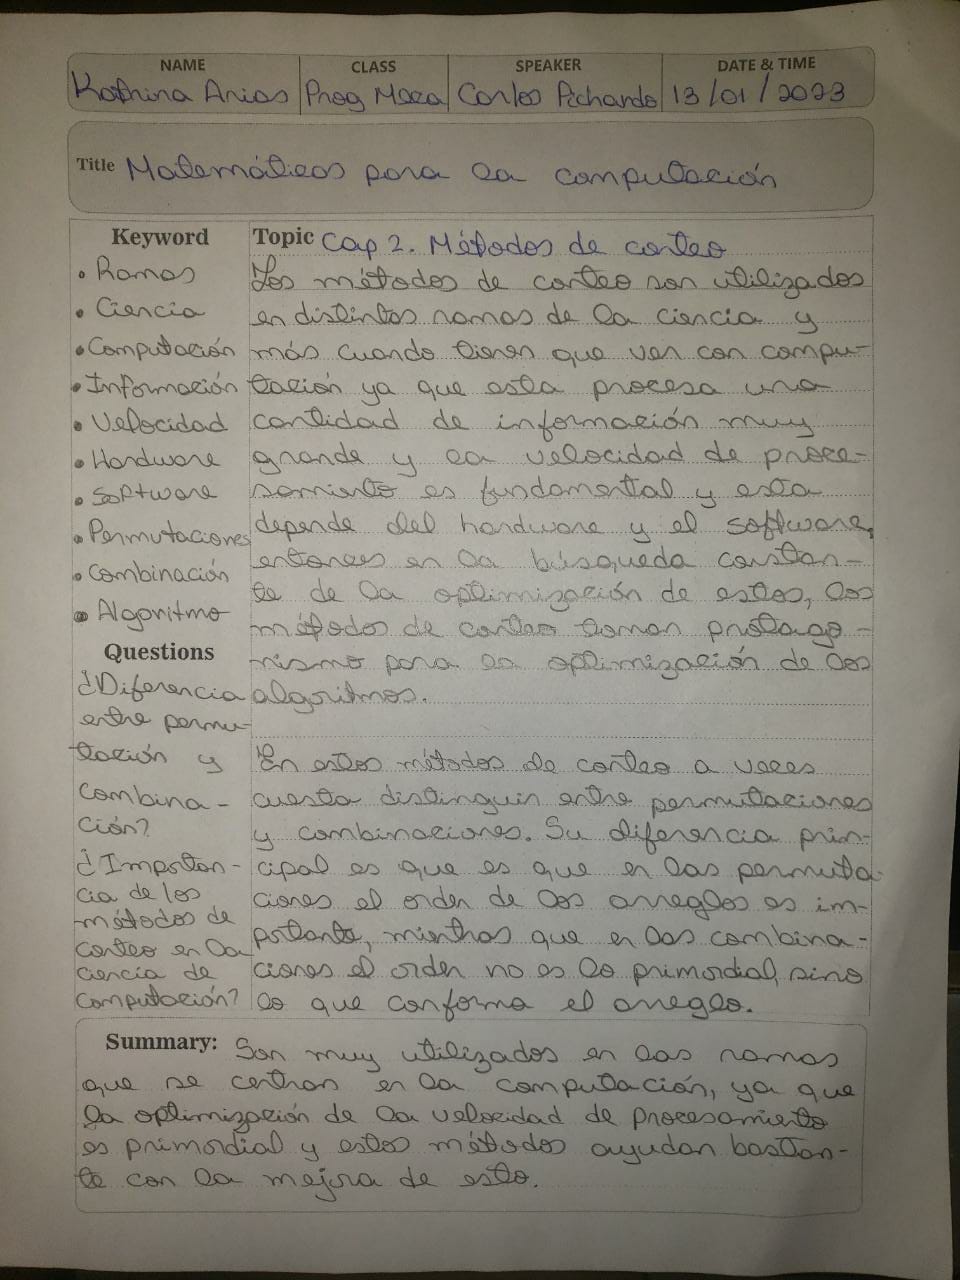 NAME CLASS SPEAKER DATE & TIME
Katrina Arias Prog Meca Carlos Pichardo 13/01/2023
Title Matemáticas para la computación
Keyword
• Ramas
• Ciencia
• Computación
• Información
• Velocidad
• Hardware
• Software
• Permutaciones
• Combinación
• Algoritmo
Questions
¿Diferencia
entre permu-
tación y
combina-
ción?
¿Importan-
cia de los
métodos de
conteo en la
ciencia de
computación?
Topic Cap 2. Métodos de conteo
Los métodos de conteo son utilizados
en distintas ramas de la ciencia y
más cuando tienen que ver con compu-
tación ya que esta procesa una
cantidad de información muy
grande y la velocidad de proce-
samiento es fundamental y esta
depende del hardware y el software,
entonces en la búsqueda constan-
te de la optimización de estos, los
métodos de conteo toman protago-
nismo para la optimización de los
algoritmos.
En estos métodos de conteo a veces
cuesta distinguir entre permutaciones
y combinaciones. Su diferencia prin-
cipal es que es que en las permuta
ciones el orden de los arreglos es im-
portante, mientras que en las combina-
ciones el orden no es lo primordial, sino
lo que conforma el arreglo.
Summary: Son muy utilizados en las ramas
que se centran en la computación, ya que
la optimización de la velocidad de procesamiento
es primordial y estos métodos ayudan bastan-
te con la mejora de esto.